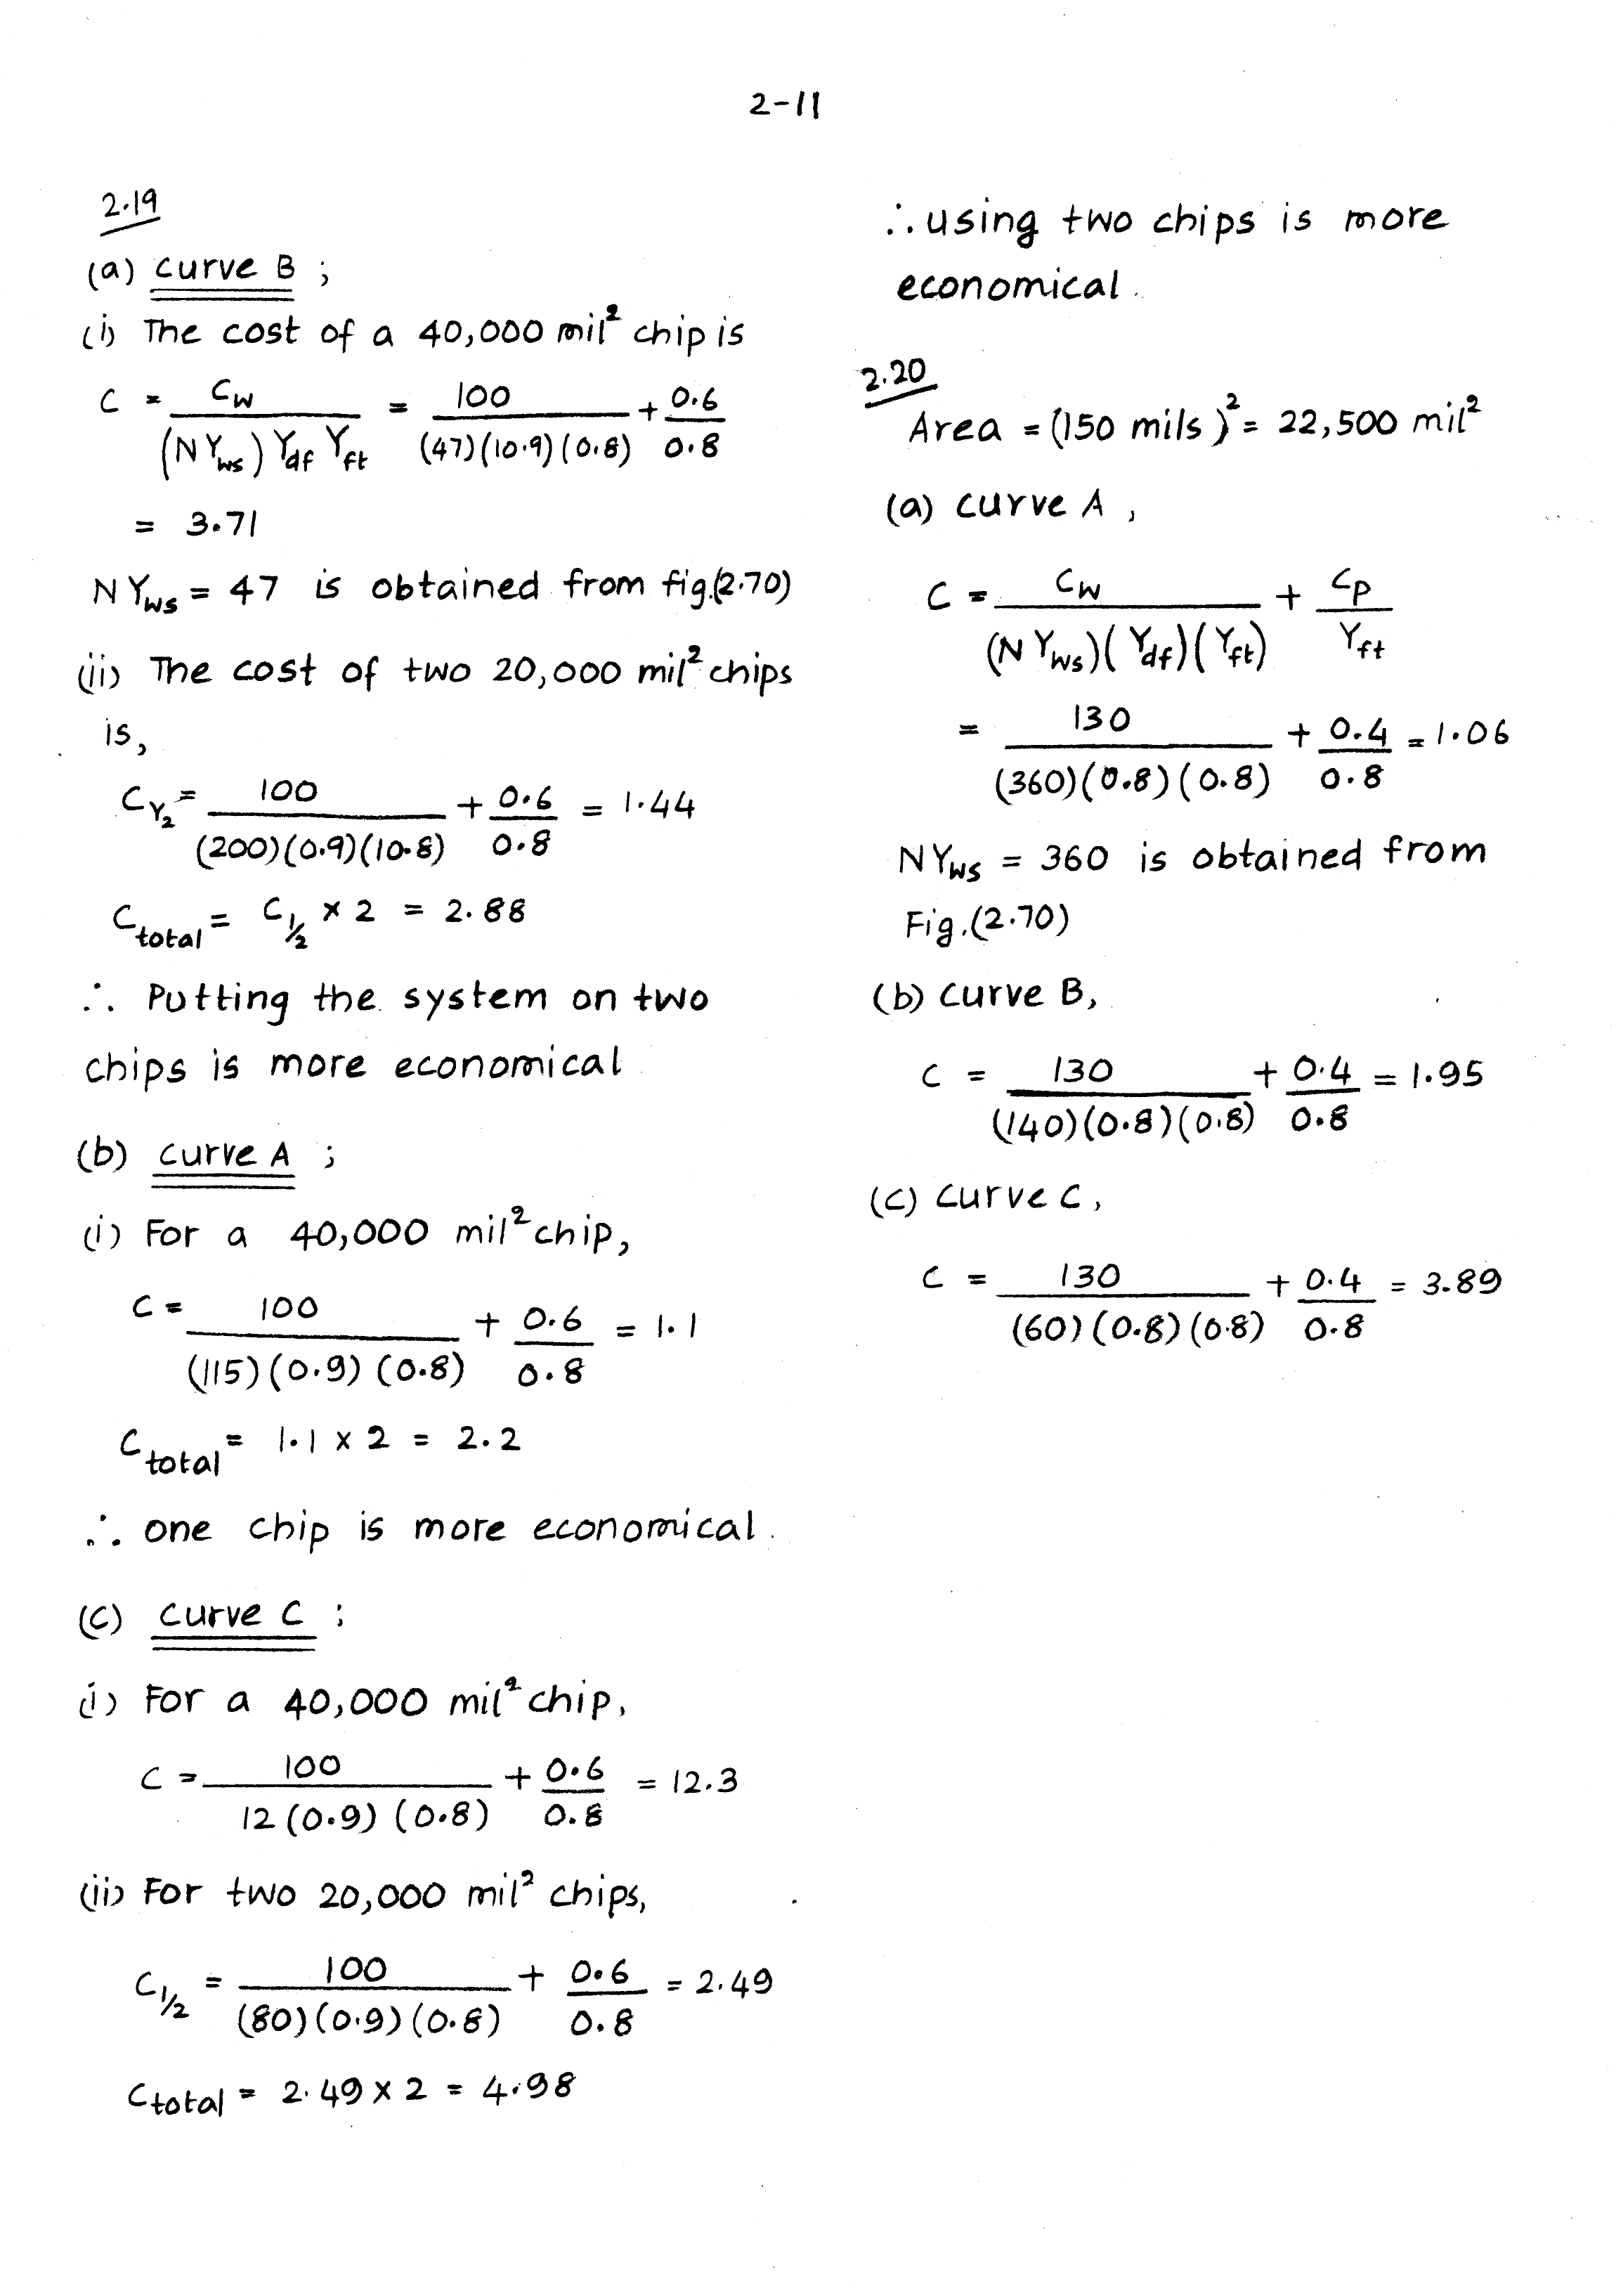 2-11
2.19
(a) curve B ;
(i) The cost of a 40,000 mil² chip is
C = Cw / (NYws) Ydf Yft = 100 / (47)(10.9)(0.8) + 0.6 / 0.8
= 3.71
NYws = 47 is obtained from fig.(2.70)
(ii) The cost of two 20,000 mil² chips
is,
CY2 = 100 / (200)(0.9)(10.8) + 0.6 / 0.8 = 1.44
Ctotal = C1/2 × 2 = 2.88
∴ Putting the system on two
chips is more economical
(b) curve A ;
(i) For a 40,000 mil² chip,
C = 100 / (115)(0.9)(0.8) + 0.6 / 0.8 = 1.1
Ctotal = 1.1 x 2 = 2.2
∴ one chip is more economical.
(C) curve C ;
(i) For a 40,000 mil² chip,
C = 100 / 12(0.9)(0.8) + 0.6 / 0.8 = 12.3
(ii) For two 20,000 mil² chips,
C1/2 = 100 / (80)(0.9)(0.8) + 0.6 / 0.8 = 2.49
Ctotal = 2.49 x 2 = 4.98
∴ using two chips is more
economical.
2.20
Area = (150 mils)² = 22,500 mil²
(a) curve A,
C = Cw / (NYws)(Ydf)(Yft) + Cp / Yft
= 130 / (360)(0.8)(0.8) + 0.4 / 0.8 = 1.06
NYws = 360 is obtained from
Fig.(2.70)
(b) curve B,
C = 130 / (140)(0.8)(0.8) + 0.4 / 0.8 = 1.95
(C) curve C,
C = 130 / (60)(0.8)(0.8) + 0.4 / 0.8 = 3.89